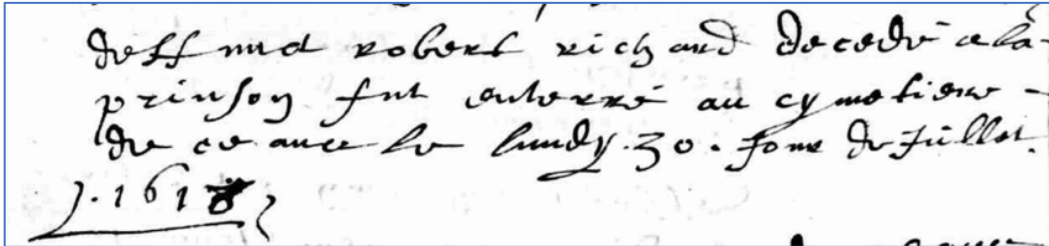 deffunct robert richard decedé a la
prinson fut enterré au cymetiere -
de ce lieu le lundy .30. jour de Juillet.
.1618